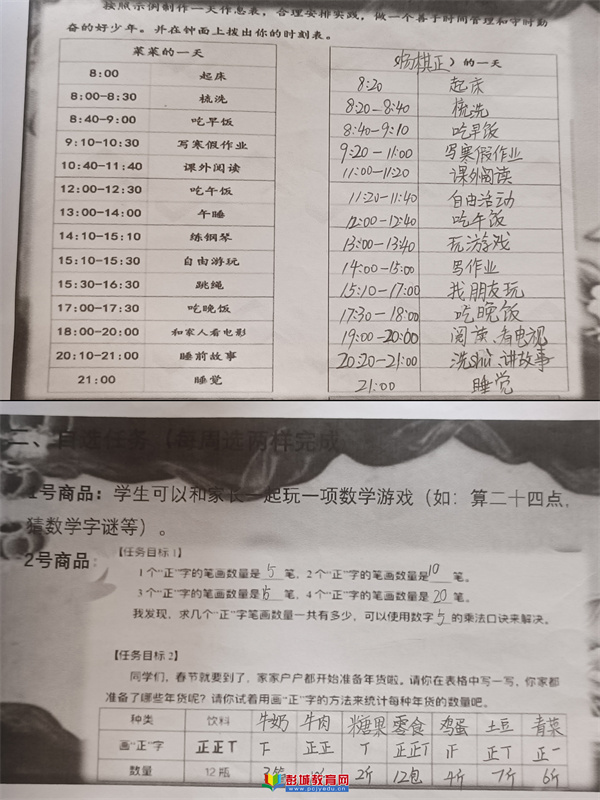 按照示例制作一天作息表，合理安排实践，做一个善于时间管理和守时勤
奋的好少年。并在钟面上拨出你的时刻表。
菜菜的一天
8:00 起床
8:00-8:30 梳洗
8:40-9:00 吃早饭
9:10-10:30 写寒假作业
10:40-11:40 课外阅读
12:00-12:30 吃午饭
13:00-14:00 午睡
14:10-15:10 练钢琴
15:10-15:30 自由游玩
15:30-16:30 跳绳
17:00-17:30 吃晚饭
18:00-20:00 和家人看电影
20:10-21:00 睡前故事
21:00 睡觉
杨棋正）的一天
8:20 起床
8:20-8:40 梳洗
8:40-9:10 吃早饭
9:20-11:00 写寒假作业
11:00-11:20 课外阅读
11:20-11:40 自由活动
12:00-12:40 吃午饭
13:00-13:40 玩游戏
14:00-15:00 写作业
15:10-17:00 找朋友玩
17:30-18:00 吃晚饭
19:00-20:00 阅读、看电视
20:20-21:00 洗shù、讲故事
21:00 睡觉
二、自选任务（每周选两样完成
1号商品：学生可以和家长一起玩一项数学游戏（如：算二十四点，
猜数学字谜等）。
2号商品：
【任务目标1】
1个“正”字的笔画数量是 5 笔，2个“正”字的笔画数量是 10 笔。
3个“正”字的笔画数量是 15 笔，4个“正”字的笔画数量是 20 笔。
我发现，求几个“正”字笔画数量一共有多少，可以使用数字 5 的乘法口诀来解决。
【任务目标2】
同学们，春节就要到了，家家户户都开始准备年货啦。请你在表格中写一写，你家都
准备了哪些年货呢？请你试着用画“正”字的方法来统计每种年货的数量吧。
种类 饮料 牛奶 牛肉 糖果 零食 鸡蛋 土豆 青菜
画“正”字 正正丅 下 正正 丅 正正丅 正丅 正一
数量 12瓶 2斤 12包 4斤 7斤 6斤
彭城教育网
www.pcjyedu.cn